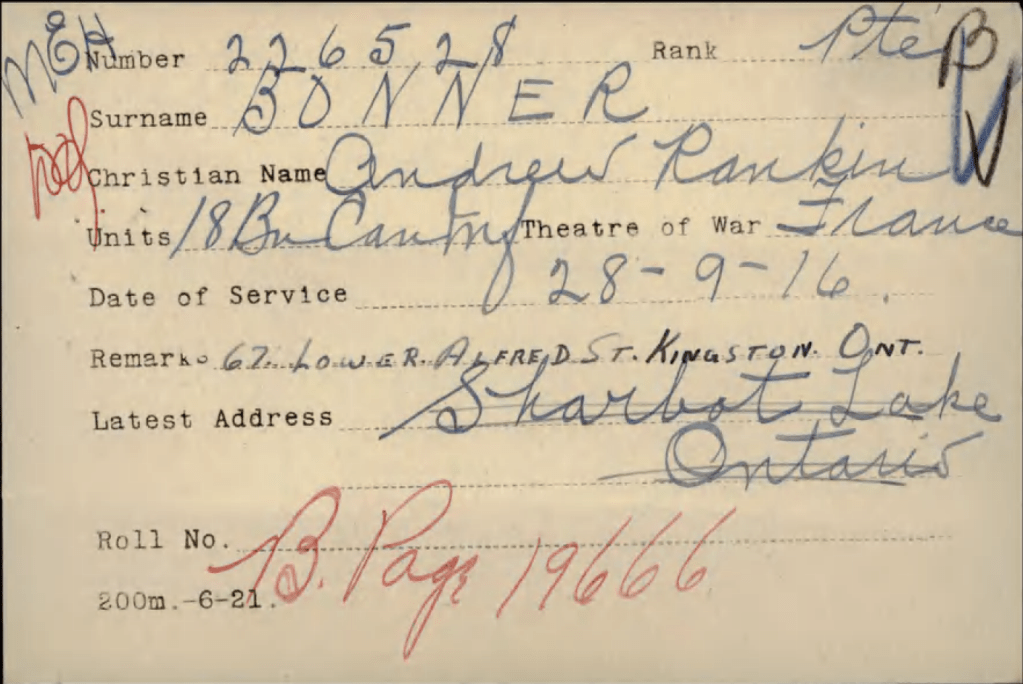 MEH
Number 226528 Rank Pte B
Surname BONNER
Christian Name Andrew Rankin
Units 18 Bn Can Inf Theatre of War France
Date of Service 28-9-16.
Remarks 67. LOWER. ALFRED ST. KINGSTON. ONT.
Latest Address Sharbot Lake
Ontario
Roll No. B. Page 19666
200m.-6-21.